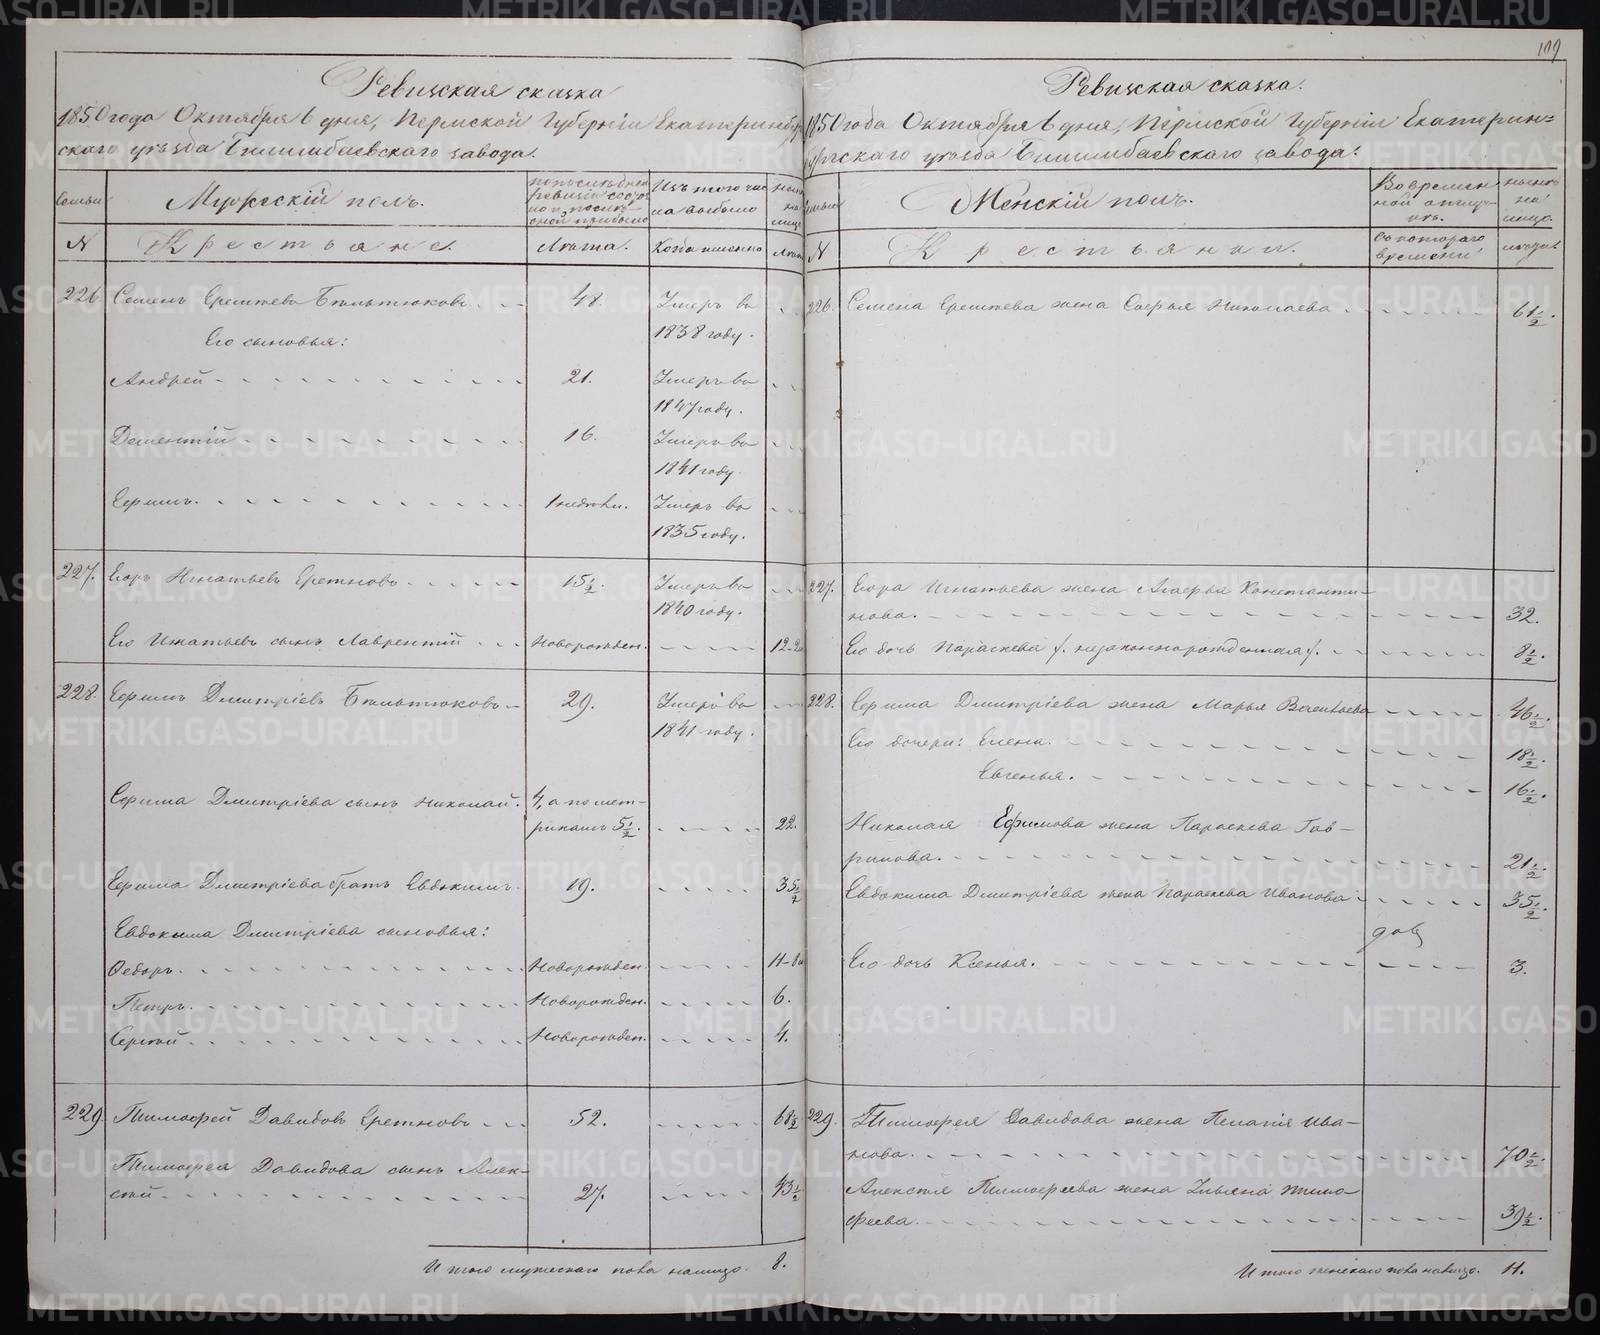 199
Ревизская сказка
1850 года Октября 6 дня, Пермской Губернiи Екатеринбур
скаго уѣзда Билимбаевскаго завода.
Семьи
Мужескiй полъ.
по послѣдней ревизiи состояло и послѣ оной прибыло
Изъ того числа выбыло
Нынѣ на лицо
N
Крестьяне.
Лѣта.
Когда именно
Лѣта
226. Семенъ Еремѣевъ Бѣльтюковъ 48. Умеръ въ
1838 году.
Его сыновья:
Андрей 21. Умеръ въ
1847 году.
Дементiй 16. Умеръ въ
1841 году.
Ефимъ 1 недѣли. Умеръ въ
1835 году.
227. Егоръ Игнатьевъ 15½. Умеръ въ
1840 году.
Его Игнатьевъ сынъ Лаврентiй Новорожден. 12
228. Ефимъ Дмитрiевъ Бѣльтюковъ 29. Умеръ въ
1841 году.
Ефима Дмитрiева сынъ Николай. 4, а по мет-
рикамъ 5½. 22.
Ефима Дмитрiева братъ Евдокимъ. 19. 35½
Евдокима Дмитрiева сыновья:
Ѳедоръ. Новорожден. 11
Петръ. Новорожден. 6.
Сергѣй Новорожден. 4.
229. Тимофей Давидовъ 52. 68½
Тимофея Давидова сынъ Алек-
сѣй 27. 43½
Итого мужескаго пола налицо. 8.
Ревизская сказка.
1850 года Октября 6 дня, Пермской Губернiи Екатерин=
бургскаго уѣзда Билимбаевскаго завода.
Семьи
Женскiй полъ.
Во временной отлучкѣ.
Нынѣ на лицо.
N
Крестьянки.
Съ котораго времени
Лѣта.
226. Семена Еремѣева жена Софья Николаева 61½.
227. Егора Игнатьева жена Агафья Константи-
нова. 32.
Его дочь Параскева /: незаконнорожденная :/. 8½.
228. Ефима Дмитрiева жена Марья Васильева 46½.
Его дочери: Елена. 18½.
Евгенья. 16½.
Николая Ефимова жена Параскева Гав-
рилова. 21½.
Евдокима Дмитрiева жена Параскева Иванова 35½.
Его дочь Ксенья. 3.
229. Тимофея Давидова жена Пелагiя Ива-
нова. 70½.
Алексѣя Тимофеева жена Ульяна Тимо-
феева. 39½.
Итого женскаго пола налицо. 11.
METRIKI.GASO-URAL.RU